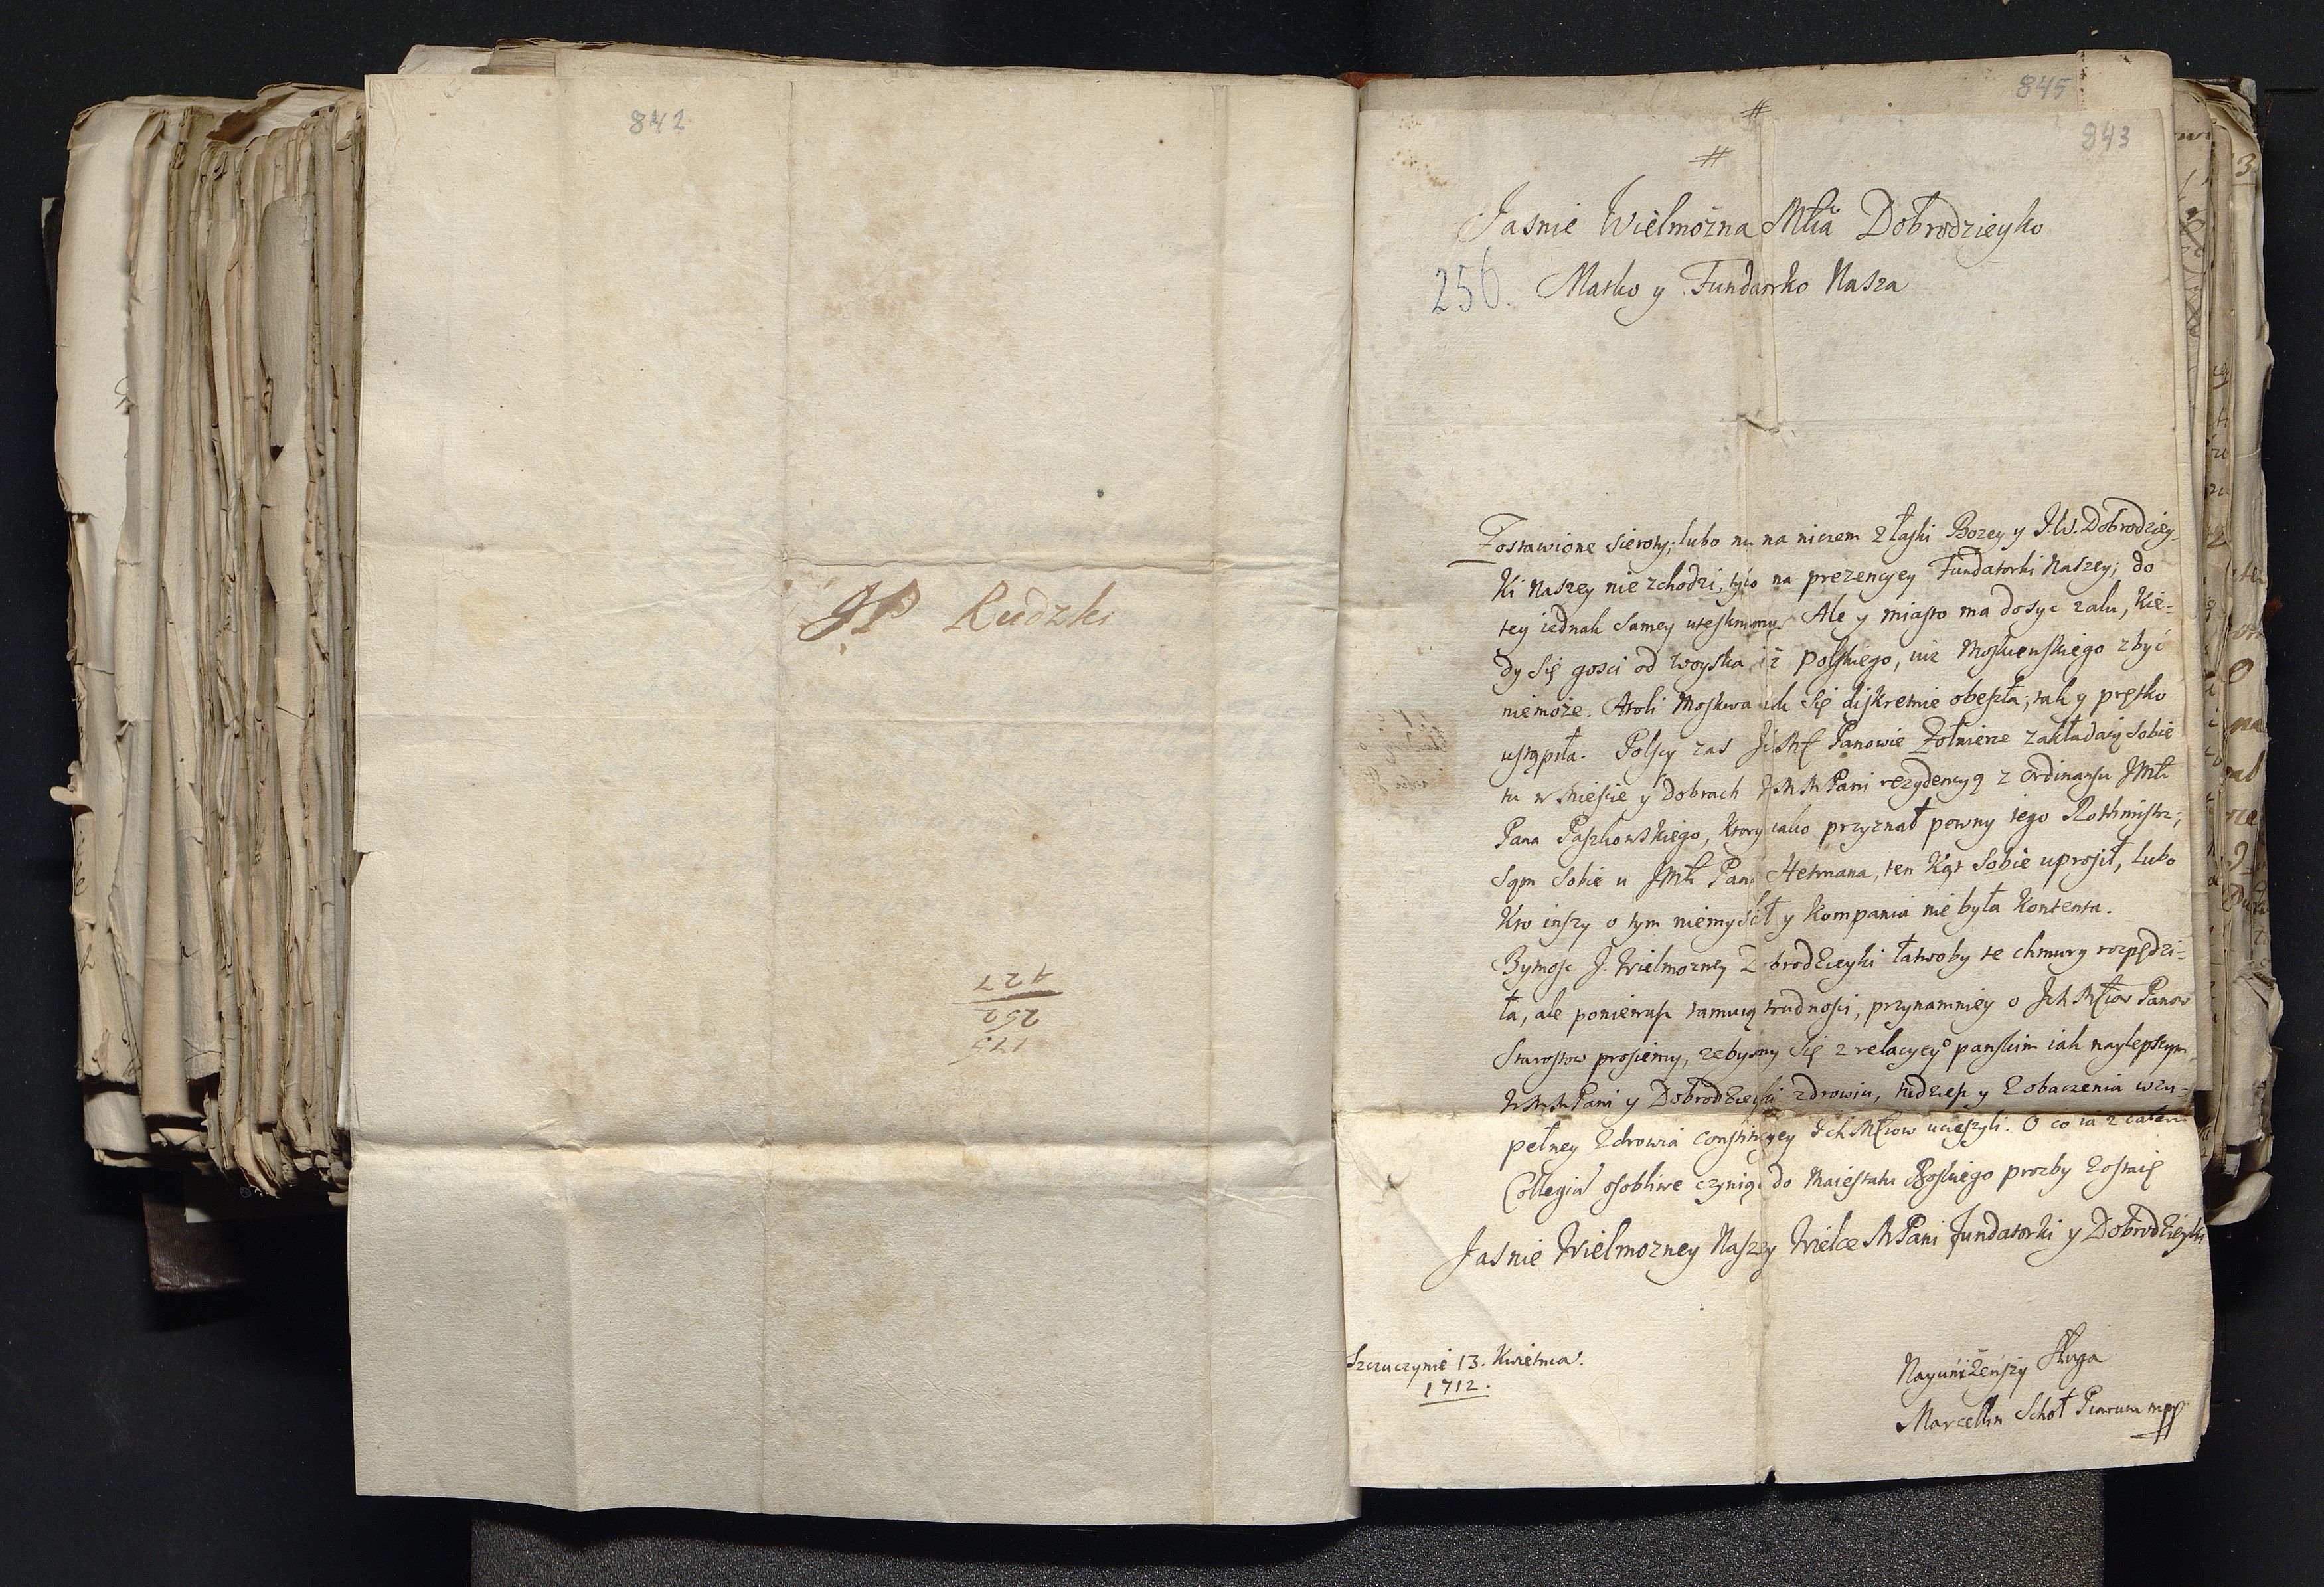 842
JP Rudzki
175
252
427
845
843
#
#
Jasnie Wielmożna Mśia Dobrodzieyko
256. Matko y Fundatorko Nasza
Zostawione sieroty, lubo nu na niczem z łaski Bozey y J.W. Dobrodziey-
ki naszey nie zchodzi, tylo na prezencyey Fundatorki Naszey; do
tey iednak samey uteskniony. Ale y miasto ma dosyc zalu, kie-
dy się gosci od woyska iż Polskiego, iuż Moskwenskiego zbyć
niemoże. Atoli Moskwa iak się diskretnie obeszła; tak y prętko
ustąpiła. Polscy zas Panowie Żołnierze zakładaią sobie
tu w Mieście y Dobrach WMMPani rezydencyą z ordinansu JMści
Pana Paszkowskiego, ktory iako przyznał pewny iego Rothmistrz;
sąm sobie u JMści Pana Hetmana, ten kąt sobie uprosił, lubo
kto inszy o tym niemyślił y kompania nie była kontenta.
Bytność J. Wielmozney Dobrodzieyki łatwoby te chmury rozpędzi-
ła, ale ponieważ tamuią trudności, przynamniey o Ich Mściow Panow
Starostow prosiemy, zebysmy się z relacyey o panskim iak naylepszym
WMMPani y Dobrodzieyki zdrowiu, tudziesz y zobaczenia wzu-
pełney zdrowia constitucyey Ich Mściow ucieszyli. O co ia z całem
Collegiu osobliwe czyniąc do Maiestatu Boskiego prozby zostaię
Jasnie Wielmozney Naszey Wielce MPani Fundatorki y Dobrodzieyki
Szczuczynie 13. Kwietnia.
1712.
Nayuniżeńszy Sługa
Marcellin Schol Piarum mpp